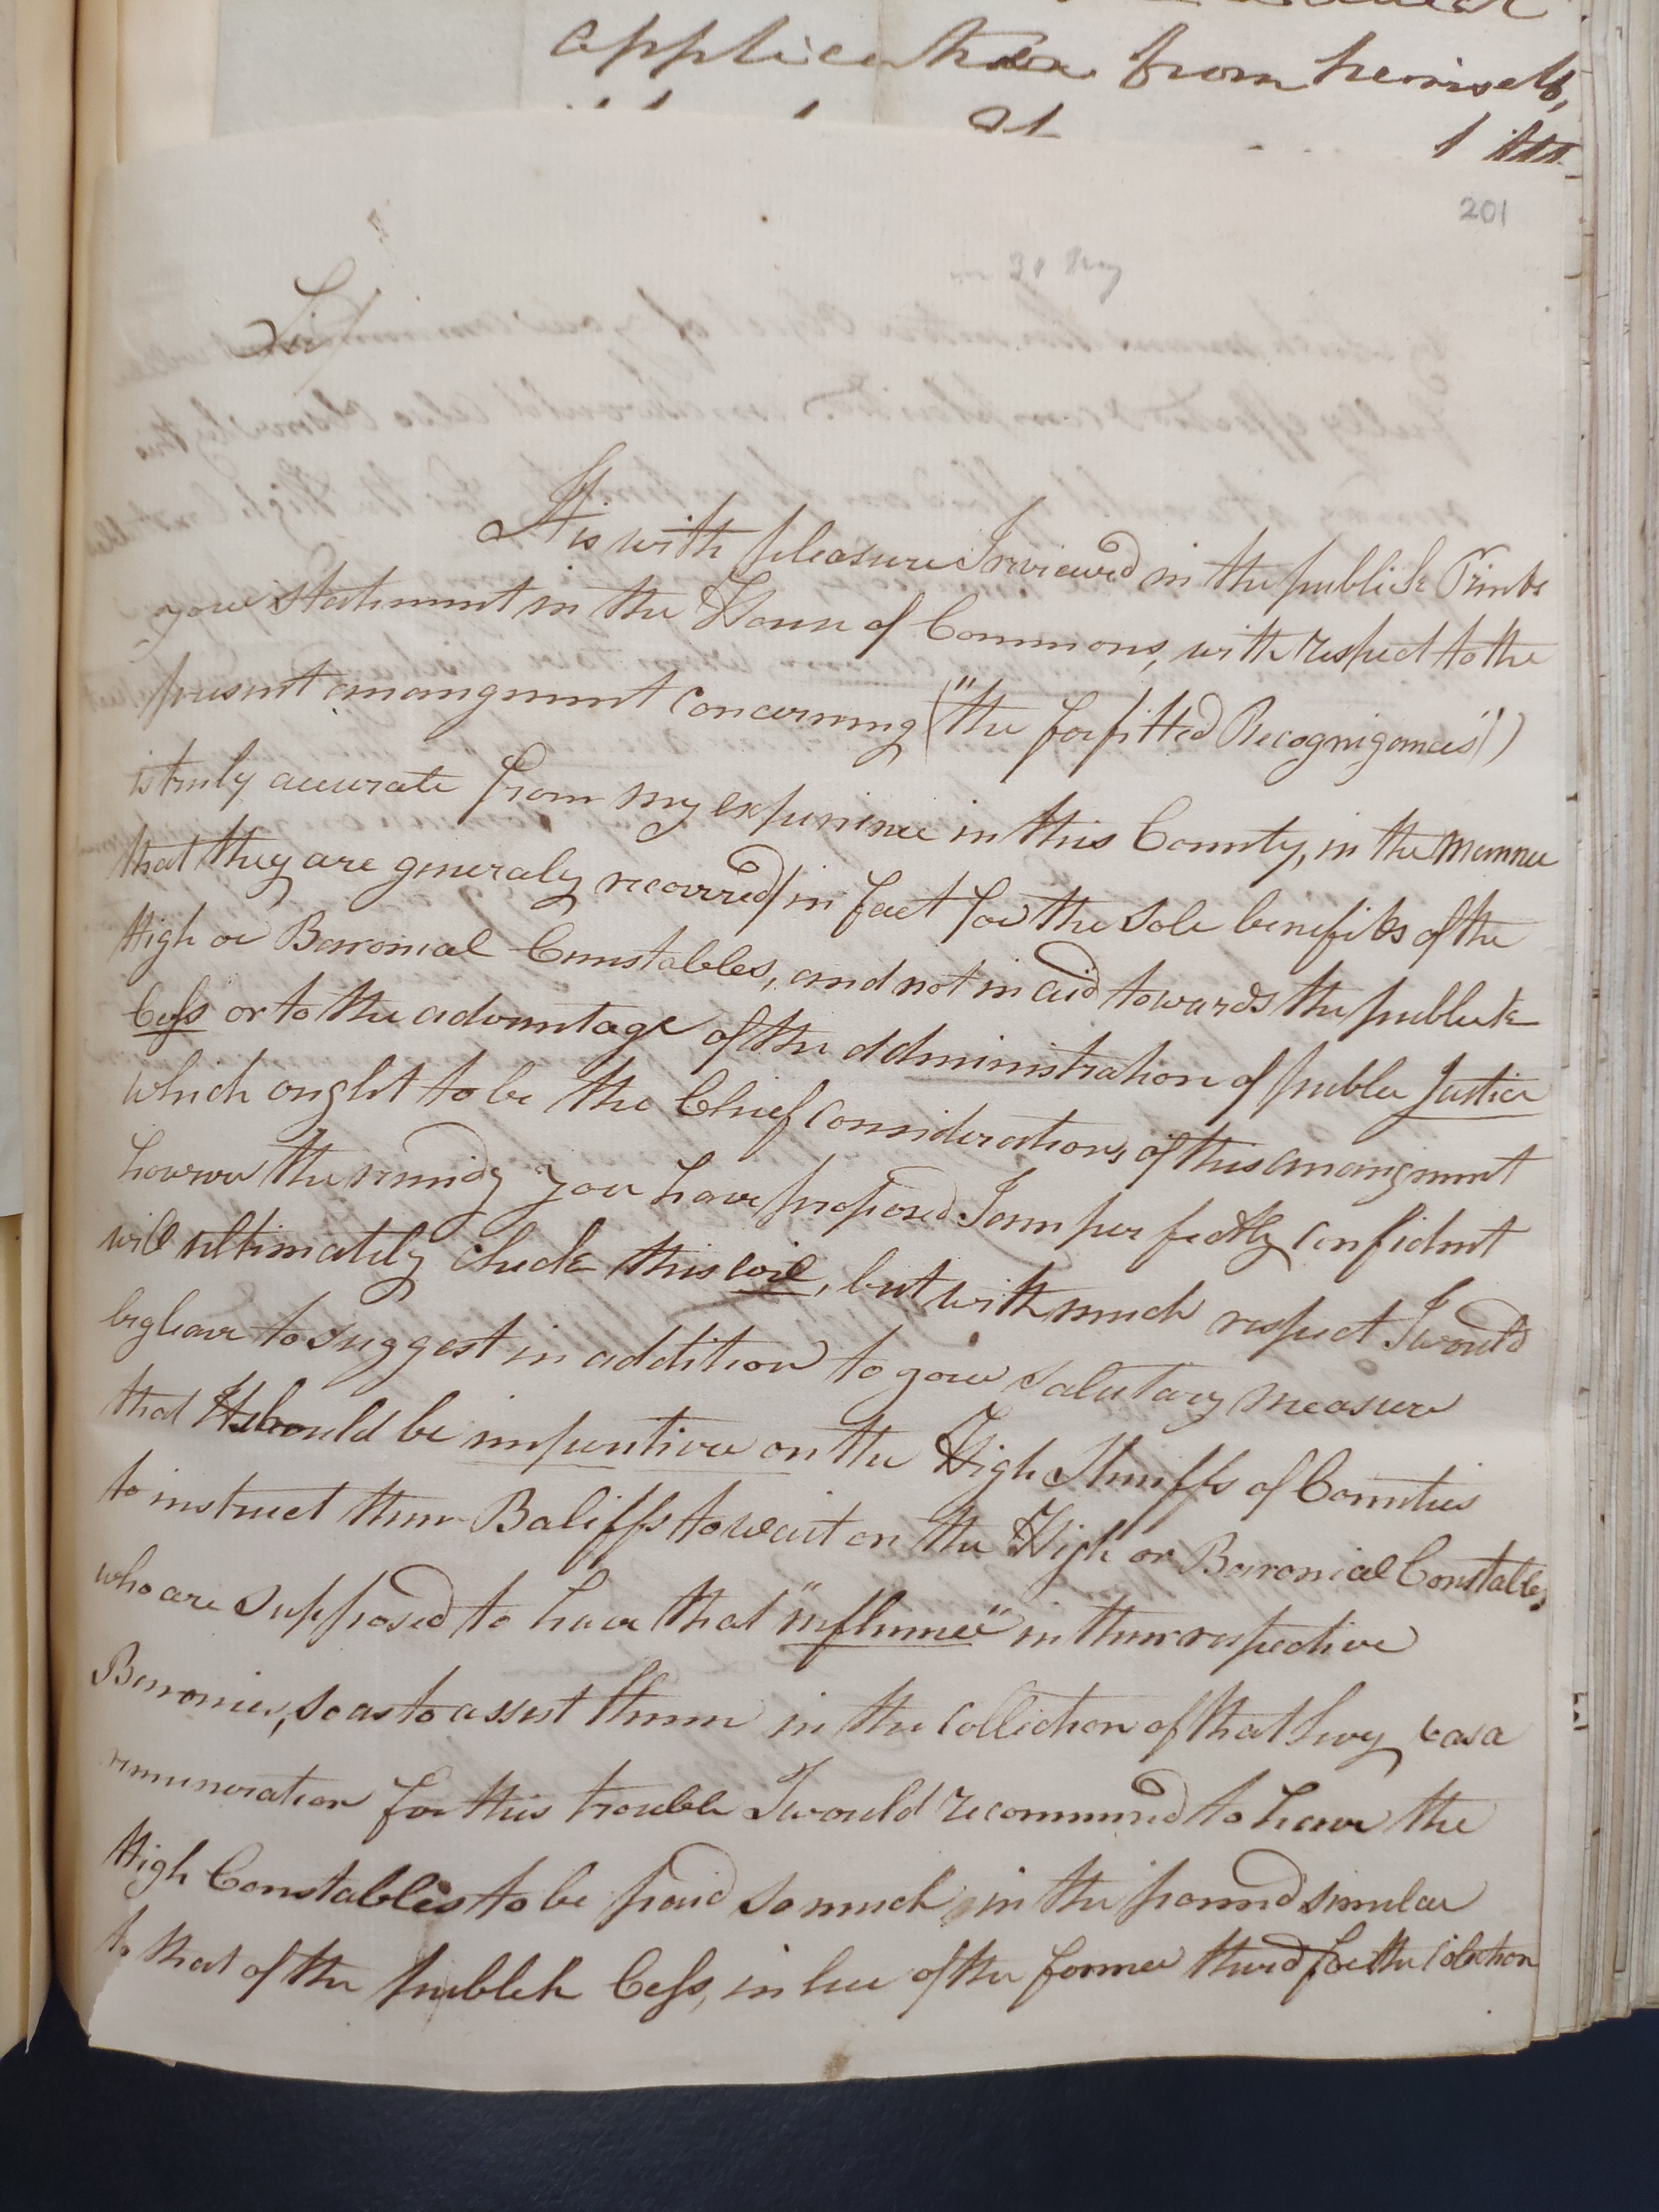 application from himself,
201
30 May
Sir/
It is with pleasure I reviewed in the publick Prints
your statement in the House of Commons, with respect to the
present arrangment concerning ("the forfitted Recognizances")
is truly accurate from my experience in this County, in the manner
that they are generaly recovred/ in fact for the sole benefits of the
High or Baronial Cunstables, and not in aid towards the publick
Cess or to the advantage of the administration of public Justice
which ought to be the Chief considerations, of this arrangment
however the remidy you have proposed I am perfectly confident
will ultimately check this evil, but with much respect I would
beg leave to suggest in addition to your salutary measure
that It should be imperitive on the High Sheriffs of Counties
to instruct their Baliffs to wait on the High or Baronial Constables,
who are supposed to have that "influence" in their respective
Baronies, so as to assist them in the collection of that levy & as a
remuneration for this trouble I would recommend to have the
High Constables to be paid so much in the pound similar
to that of the publck Cess, in lieu of the former third for the Colection